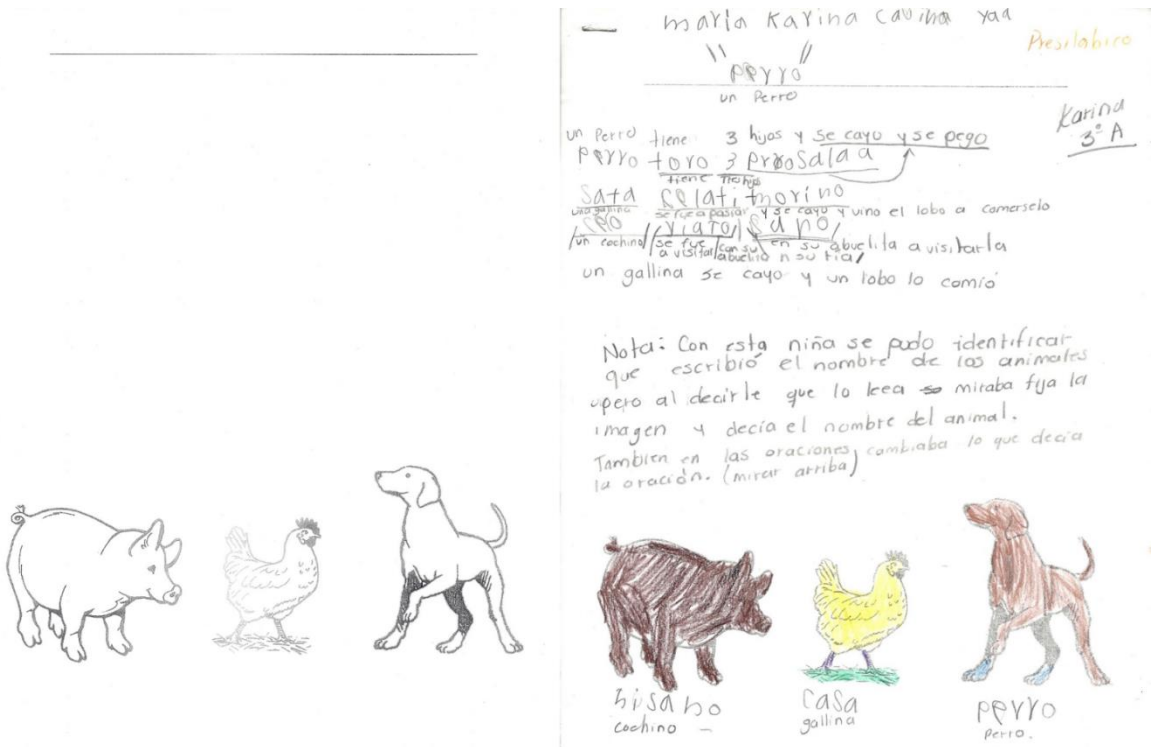 maria Karina cauiha yaa
Presilabico
" perro "
un Perro
Karina
3° A
un Perro tiene 3 hijos y se cayo y se pego
perro toro 3 prrosalaa
tiene
sata selati tnorino
una gallina se fue a pasiar y se cayo y vino el lobo a comerselo
viato sano
/un cochino/ se fue a visitar/ con su abuelito en su abuelita a visitarla
n su tia/
un gallina se cayo y un lobo lo comió
Nota: Con esta niña se pudo identificar
que escribió el nombre de los animales
pero al decirle que lo leea miraba fija la
imagen y decía el nombre del animal.
Tambien en las oraciones cambiaba lo que decia
la oración. (mirar arriba)
hisaho casa perro
cochino gallina Perro.